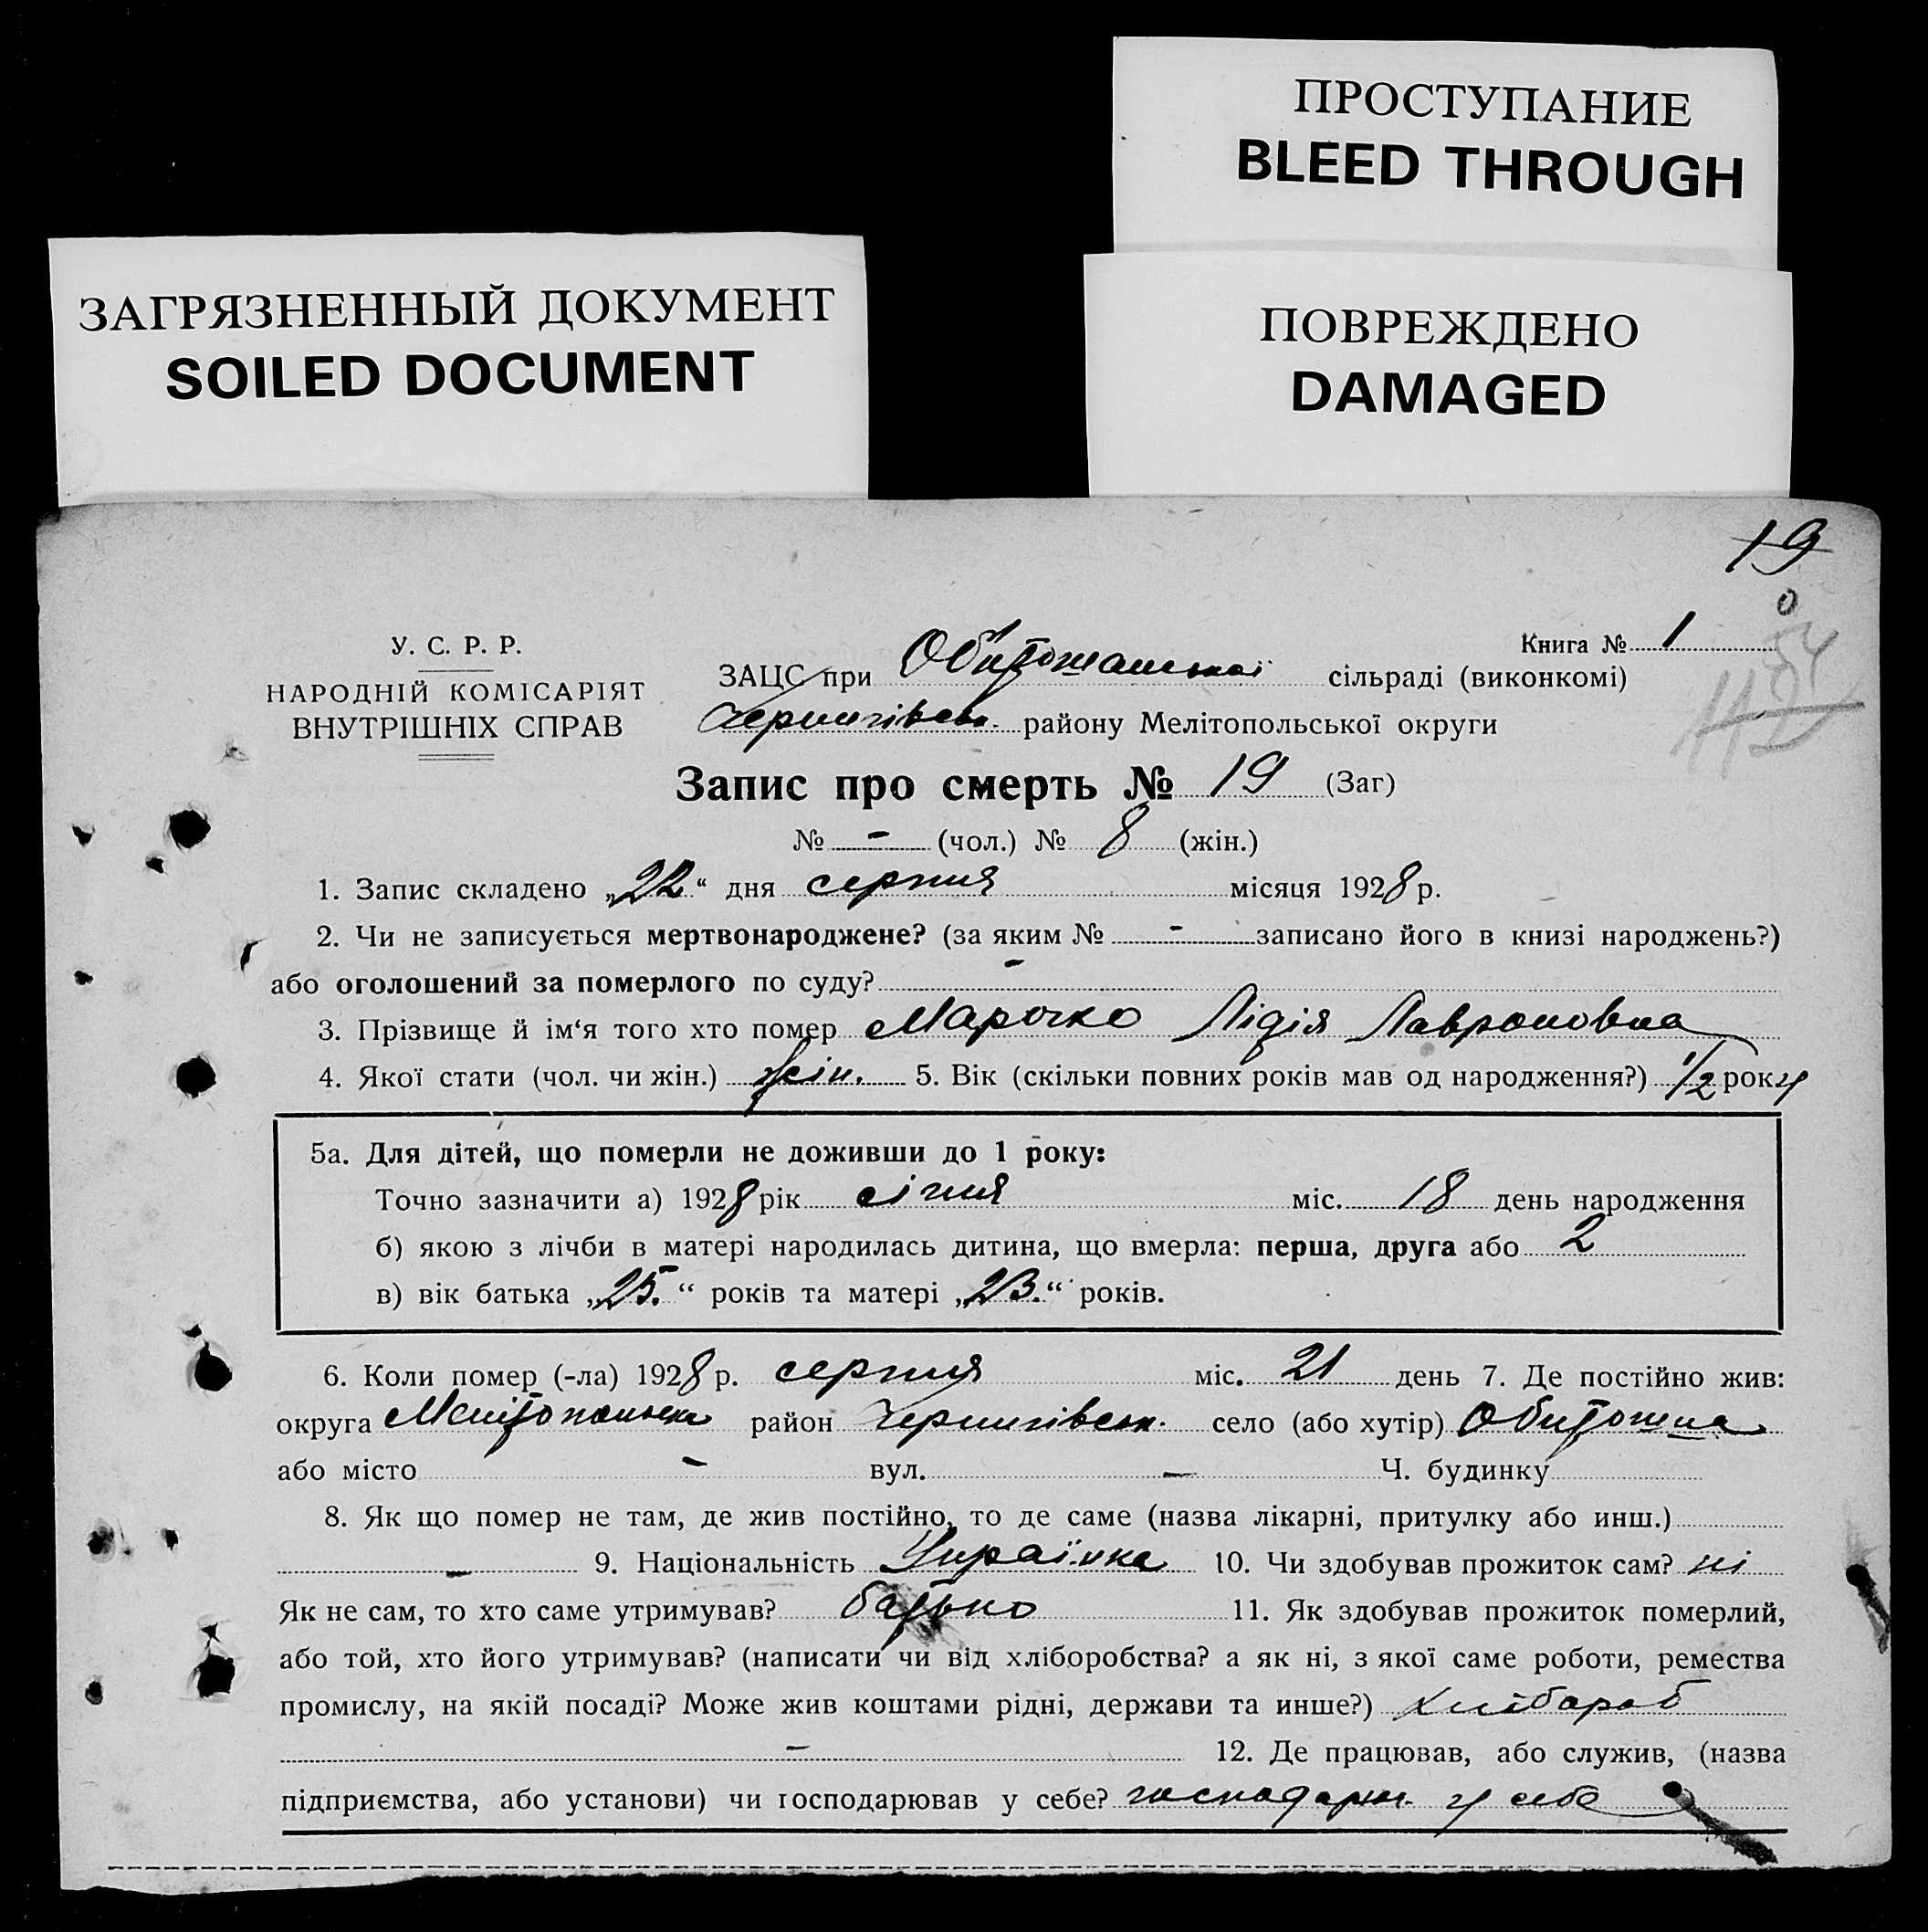 ПРОСТУПАНИЕ
BLEED THROUGH
ЗАГРЯЗНЕННЫЙ ДОКУМЕНТ
SOILED DOCUMENT
ПОВРЕЖДЕНО
DAMAGED
19
У. С. Р. Р.
НАРОДНІЙ КОМІСАРІЯТ
ВНУТРІШНІХ СПРАВ
Книга № 1
54
ЗАЦС при Обиточанській сільраді (виконкомі)
Чернигівськ. району Мелітопольської округи
Запис про смерть № 19 (Заг)
№ - (чол.) № 8 (жін.)
1. Запис складено „22“ дня серпня місяця 1928 р.
2. Чи не записується мертвонароджене? (за яким № - записано його в книзі народжень?)
або оголошений за померлого по суду? -
3. Прізвище й ім‘я того хто помер Марочко Лідія Лавроновна
4. Якої стати (чол. чи жін.) жін. 5. Вік (скільки повних років мав од народження?) 1/2 року
5а. Для дітей, що померли не доживши до 1 року:
Точно зазначити а) 1928 рік січня міс. 18 день народження
б) якою з лічби в матері народилась дитина, що вмерла: перша, друга або 2
в) вік батька „25.“ років та матері „23.“ років.
6. Коли помер (-ла) 1928 р. серпня міс. 21 день 7. Де постійно жив:
округа Мелітопольська район Чернигівськ. село (або хутір) Обиточна
або місто - вул. - Ч. будинку
8. Як що помер не там, де жив постійно, то де саме (назва лікарні, притулку або инш.)
- 9. Національність Українка 10. Чи здобував прожиток сам? ні
Як не сам, то хто саме утримував? батько 11. Як здобував прожиток померлий,
або той, хто його утримував? (написати чи від хліборобства? а як ні, з якої саме роботи, ремества
промислу, на якій посаді? Може жив коштами рідні, держави та инше?) хлібороб
- 12. Де працював, або служив, (назва
підприємства, або установи) чи господарював у себе? господарюв. у себе